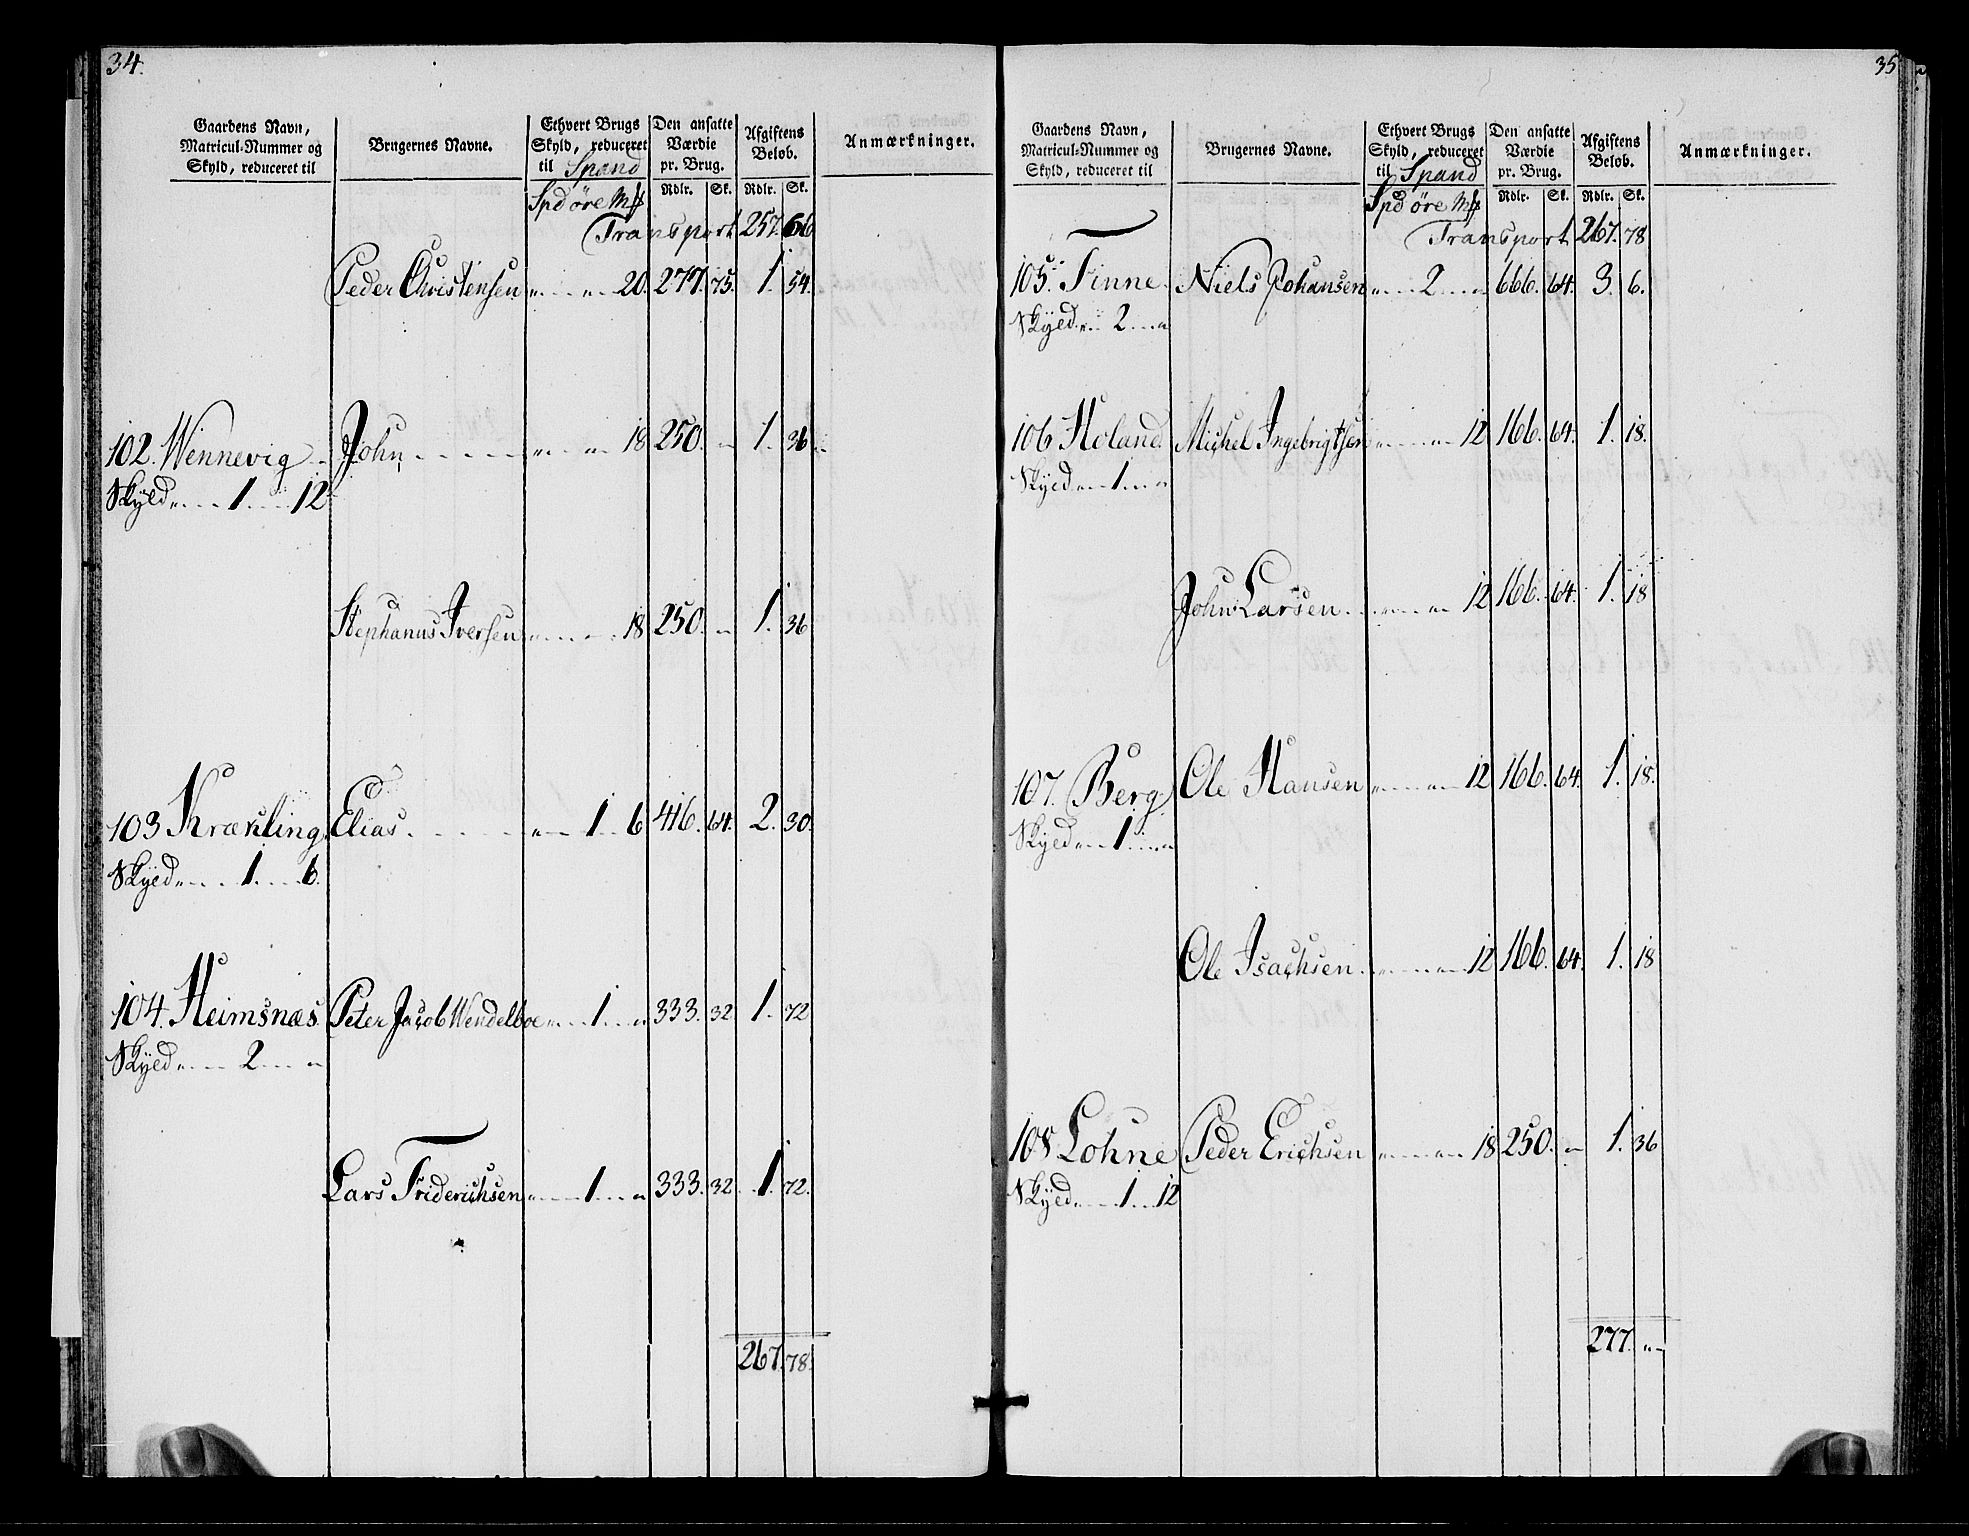 34.
Gaardens Navn, Matricul-Nummer og Skyld, reduceret til | Brugernes Navne. | Ethvert Brugs Skyld, reduceret til Spand | Den ansatte Værdie pr. Brug. | Afgiftens Beløb. | Anmærkninger.
Spd öre | Rdlr. | Sk. | Rdlr. | Sk.
Transport 257. 66
Peder Christensen „ „ 20. 277. 75. 1. 54.
102. Wennevig John „ „ 18 250. „ 1. 36
Skyld „ 1 12
Stephanus Iversen „ „ 18 250. „ 1. 36
103 Krækling Elias „ 1 6 416. 64. 2. 30.
Skyld „ 1 6.
104. Heimsnæs Peter Jacob Wendelboe „ 1 „ 333. 32 1. 72
Skyld „ 2 „
Lars Friderichsen „ 1 „ 333. 32 1. 72.
267. 78.
35
Gaardens Navn, Matricul-Nummer og Skyld, reduceret til | Brugernes Navne. | Ethvert Brugs Skyld, reduceret til Spand | Den ansatte Værdie pr. Brug. | Afgiftens Beløb. | Anmærkninger.
Spd öre | Rdlr. | Sk. | Rdlr. | Sk.
Transport 267. 78
105. Finne Niels Johansen „ 2 „ 666. 64. 3. 6.
Skyld „ 2 „
106 Holand Michel Ingebrigtsen „ „ 12 166. 64. 1. 18.
Skyld „ 1 „
John Larsen „ „ 12 166. 64. 1. 18
107. Berg Ole Hansen „ „ 12 166. 64. 1. 18.
Skyld „ 1 „
Ole Isachsen „ „ 12 166. 64. 1. 18
108 Lohne Peder Erichsen „ „ 18 250. „ 1. 36
Skyld „ 1 12
277. „